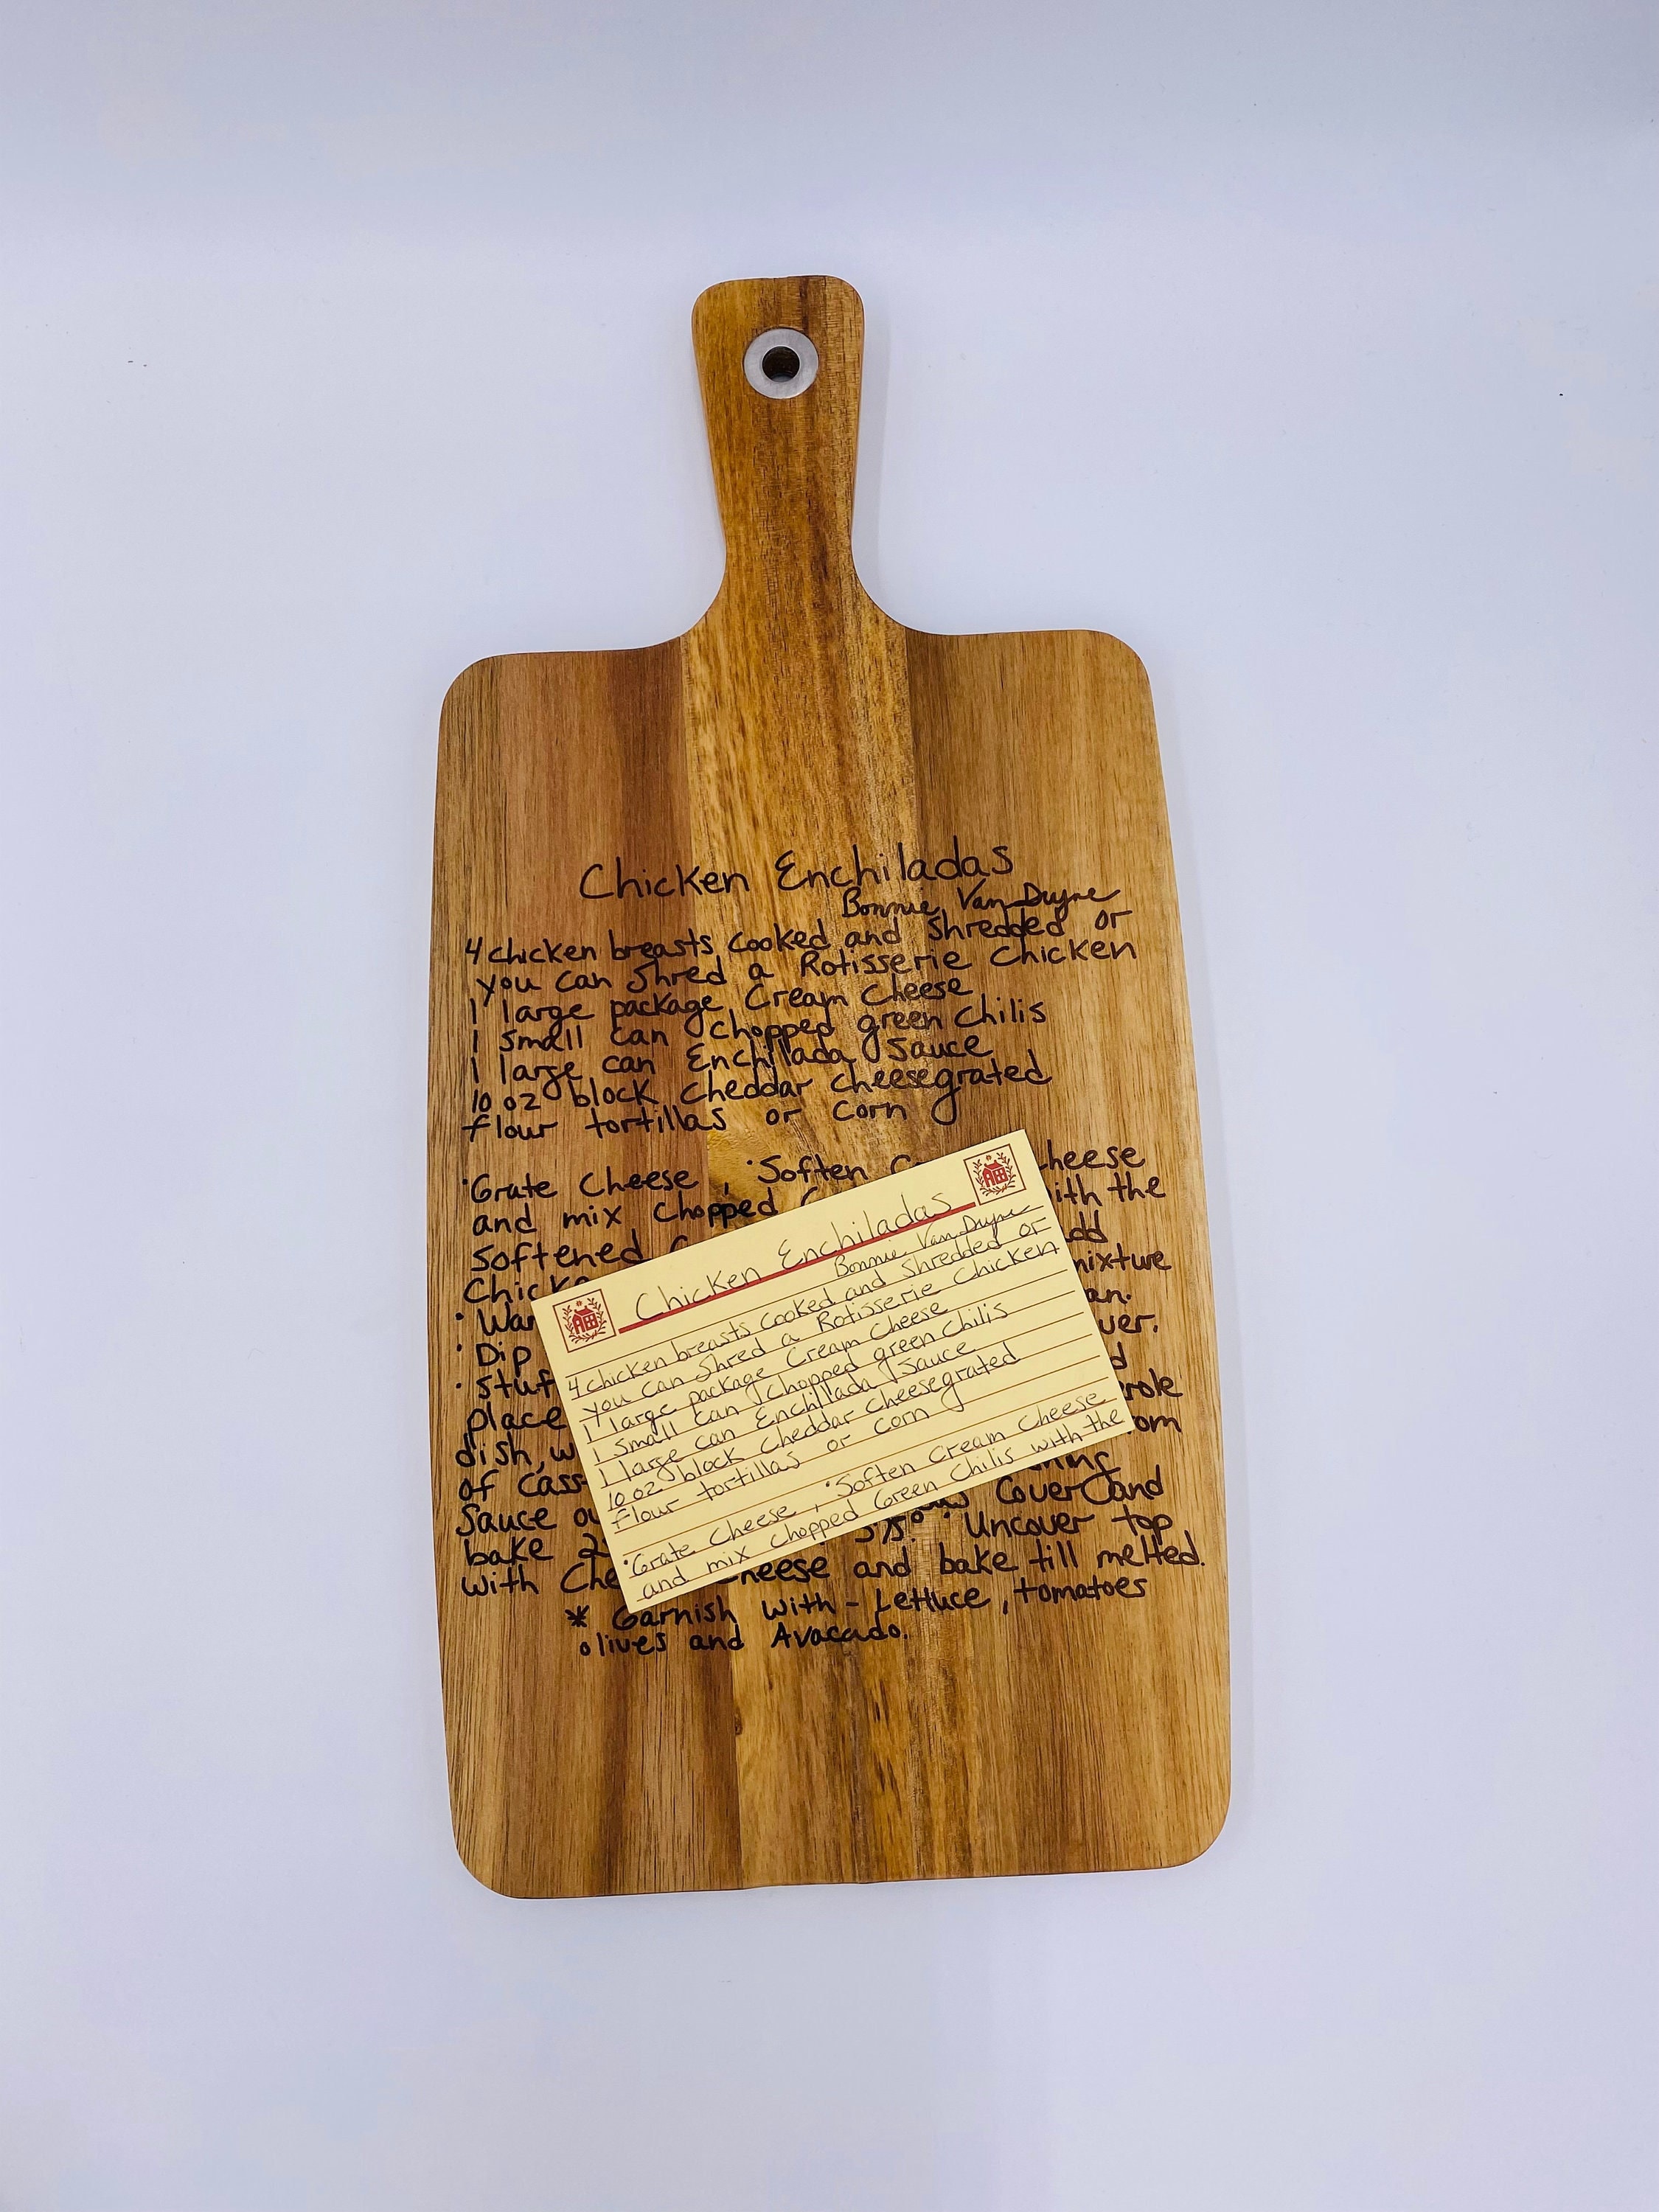 Chicken Enchiladas
Bonnie Van Duyne
4 chicken breasts cooked and shredded or
you can shred a Rotisserie Chicken
1 large package Cream Cheese
1 small can chopped green chilis
1 large can Enchilada Sauce
10 oz block cheddar cheese grated
flour tortillas or corn
·Grate Cheese, ·Soften cheese
and mix chopped with the
softened
mixture
· Dip
·
place
dish,
of
Sauce
bake 375° · Uncover top
with Cheese and bake till melted.
* Garnish with - Lettuce, tomatoes
olives and Avacado.
Cover and
Chicken Enchiladas
Bonnie Van Duyne
4 chicken breasts cooked and shredded or
you can shred a Rotisserie Chicken
1 large package Cream Cheese
1 small can chopped green chilis
1 large can Enchilada Sauce
10 oz block cheddar cheese grated
flour tortillas or corn
·Grate Cheese, ·Soften Cream Cheese
and mix chopped Green Chilis with the